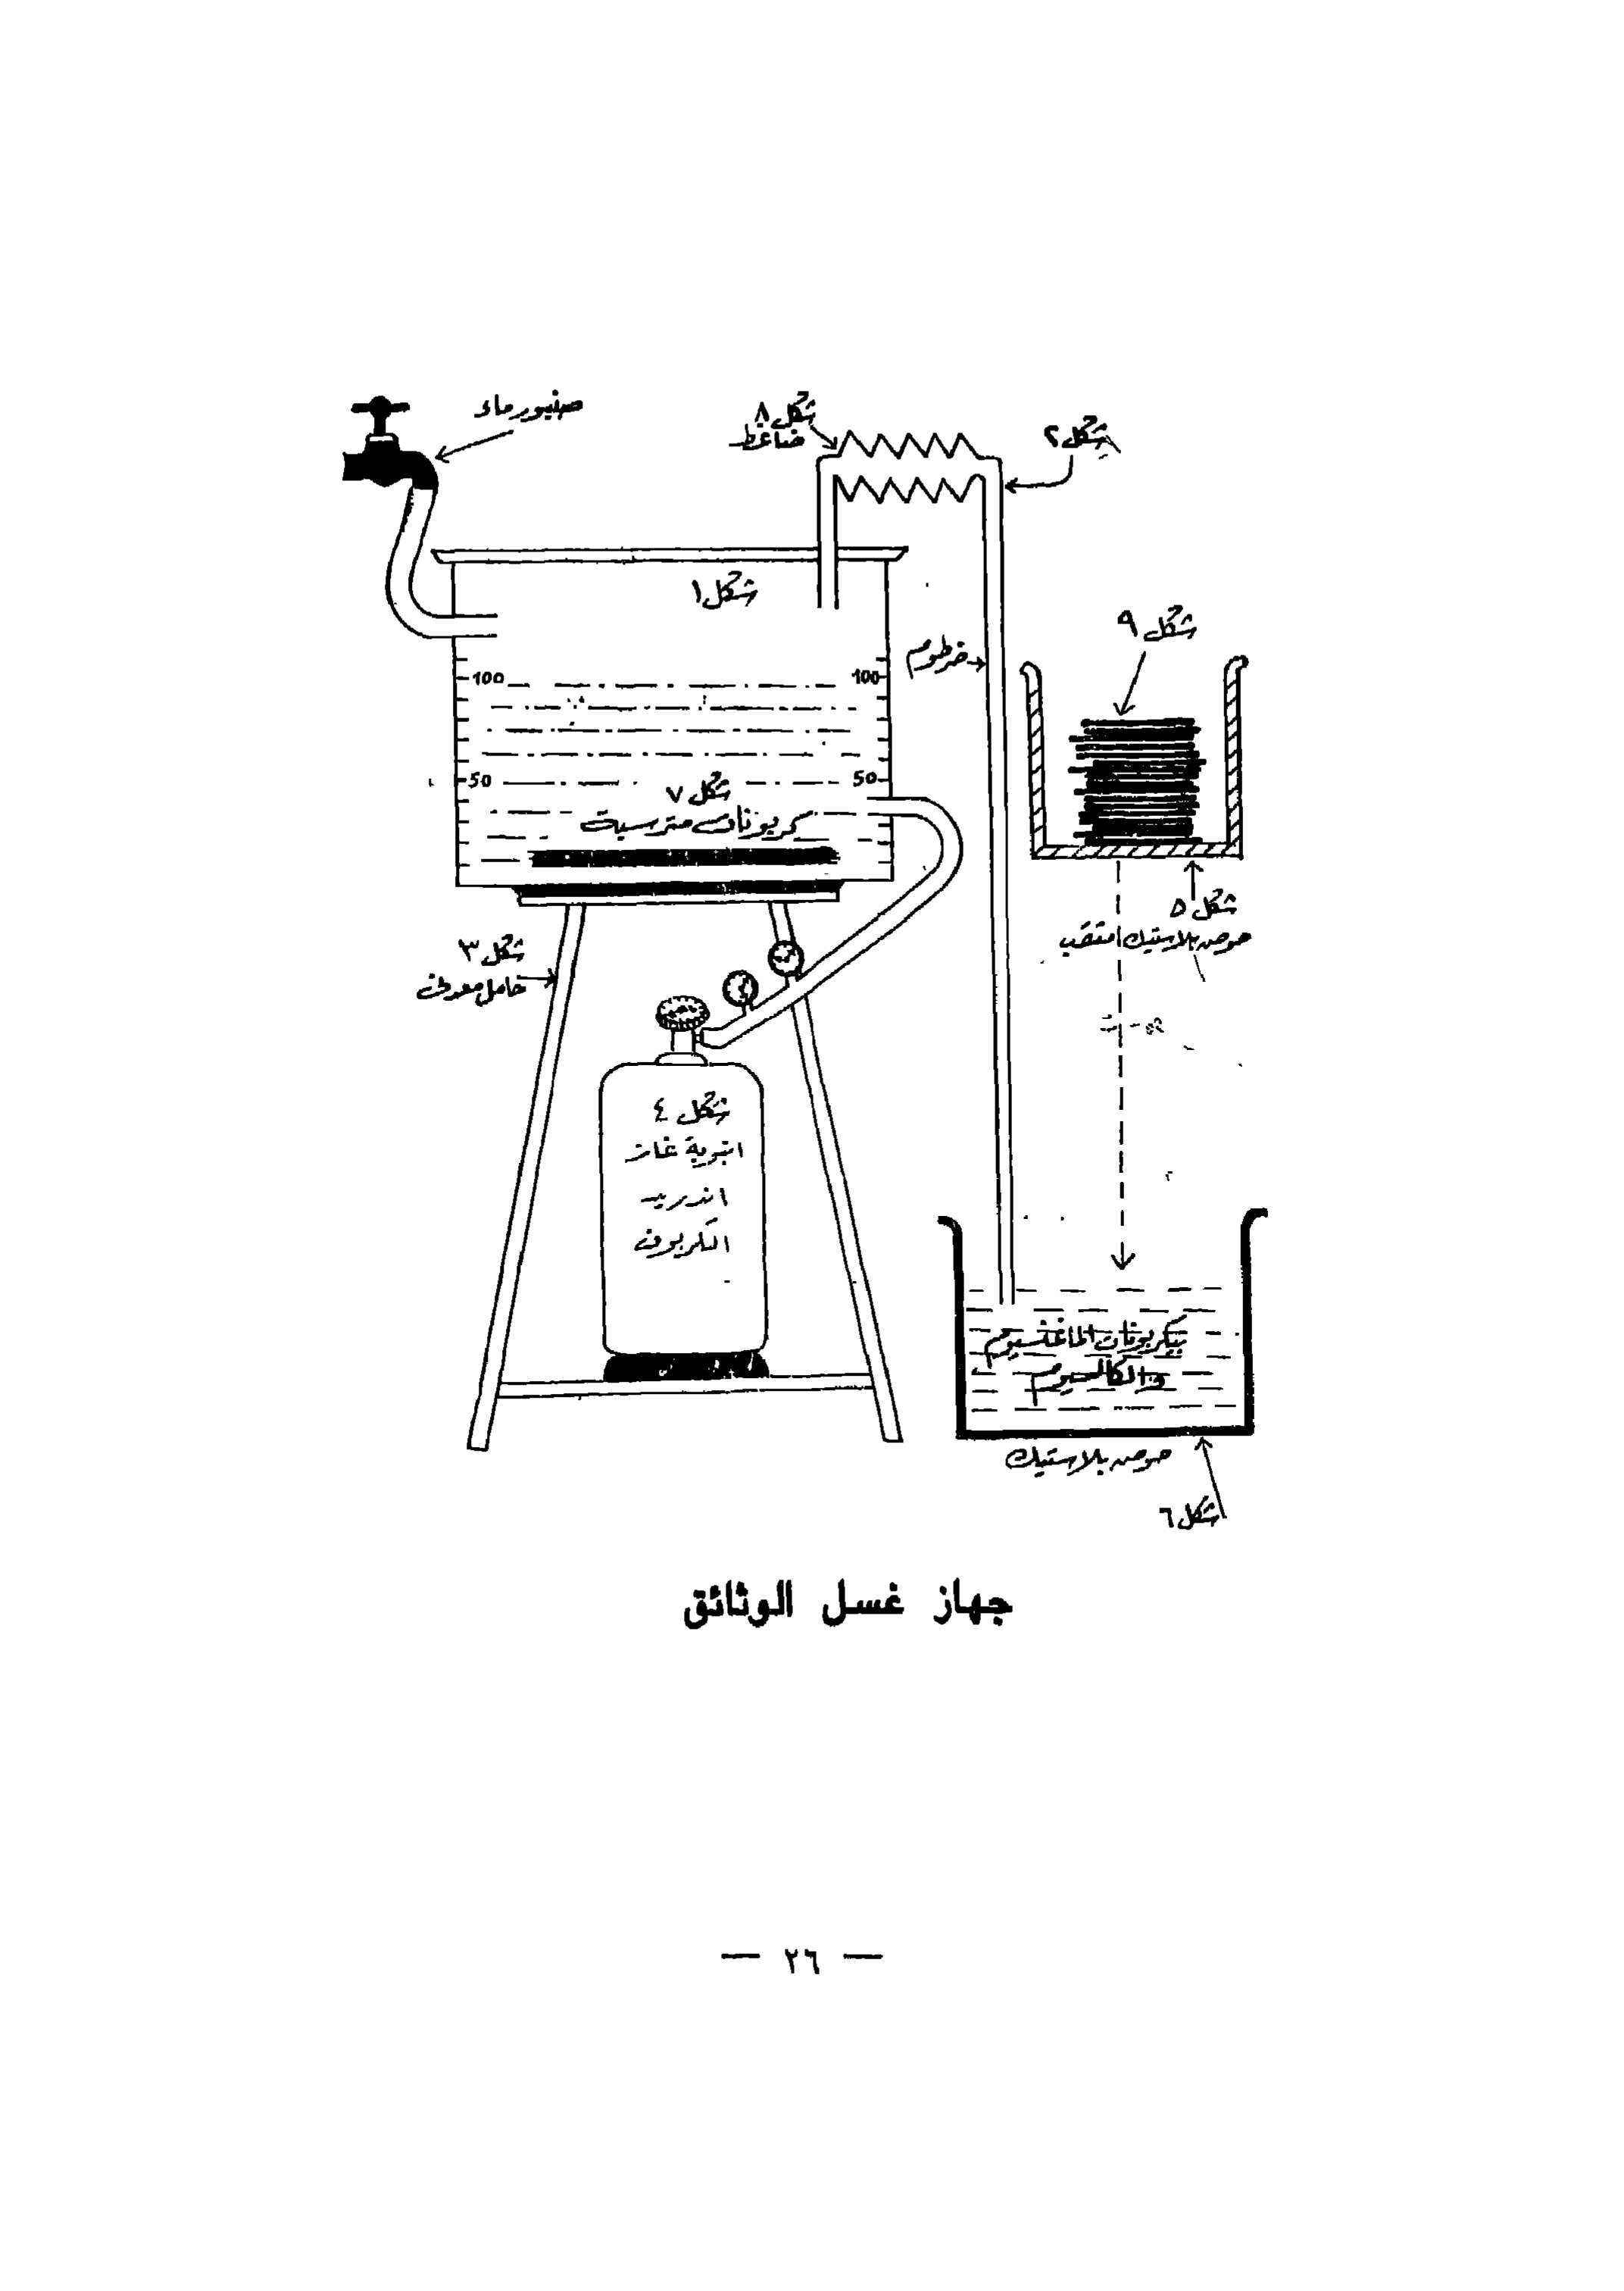 صنبور ماء
شكل ٨
ضاغط
شكل ٢
شكل ١
خرطوم
شكل ٩
100
100
50
50
شكل ٧
كربونات مترسبة
شكل ٥
حوض بلاستيك مثقب
شكل ٣
حامل معدني
شكل ٤
انبوبة غاز
اندريد
الكربون
بيكربونات الماغنسيوم
والكالسيوم
حوض بلاستيك
شكل ٦
جهاز غسل الوثائق
— ٢٦ —